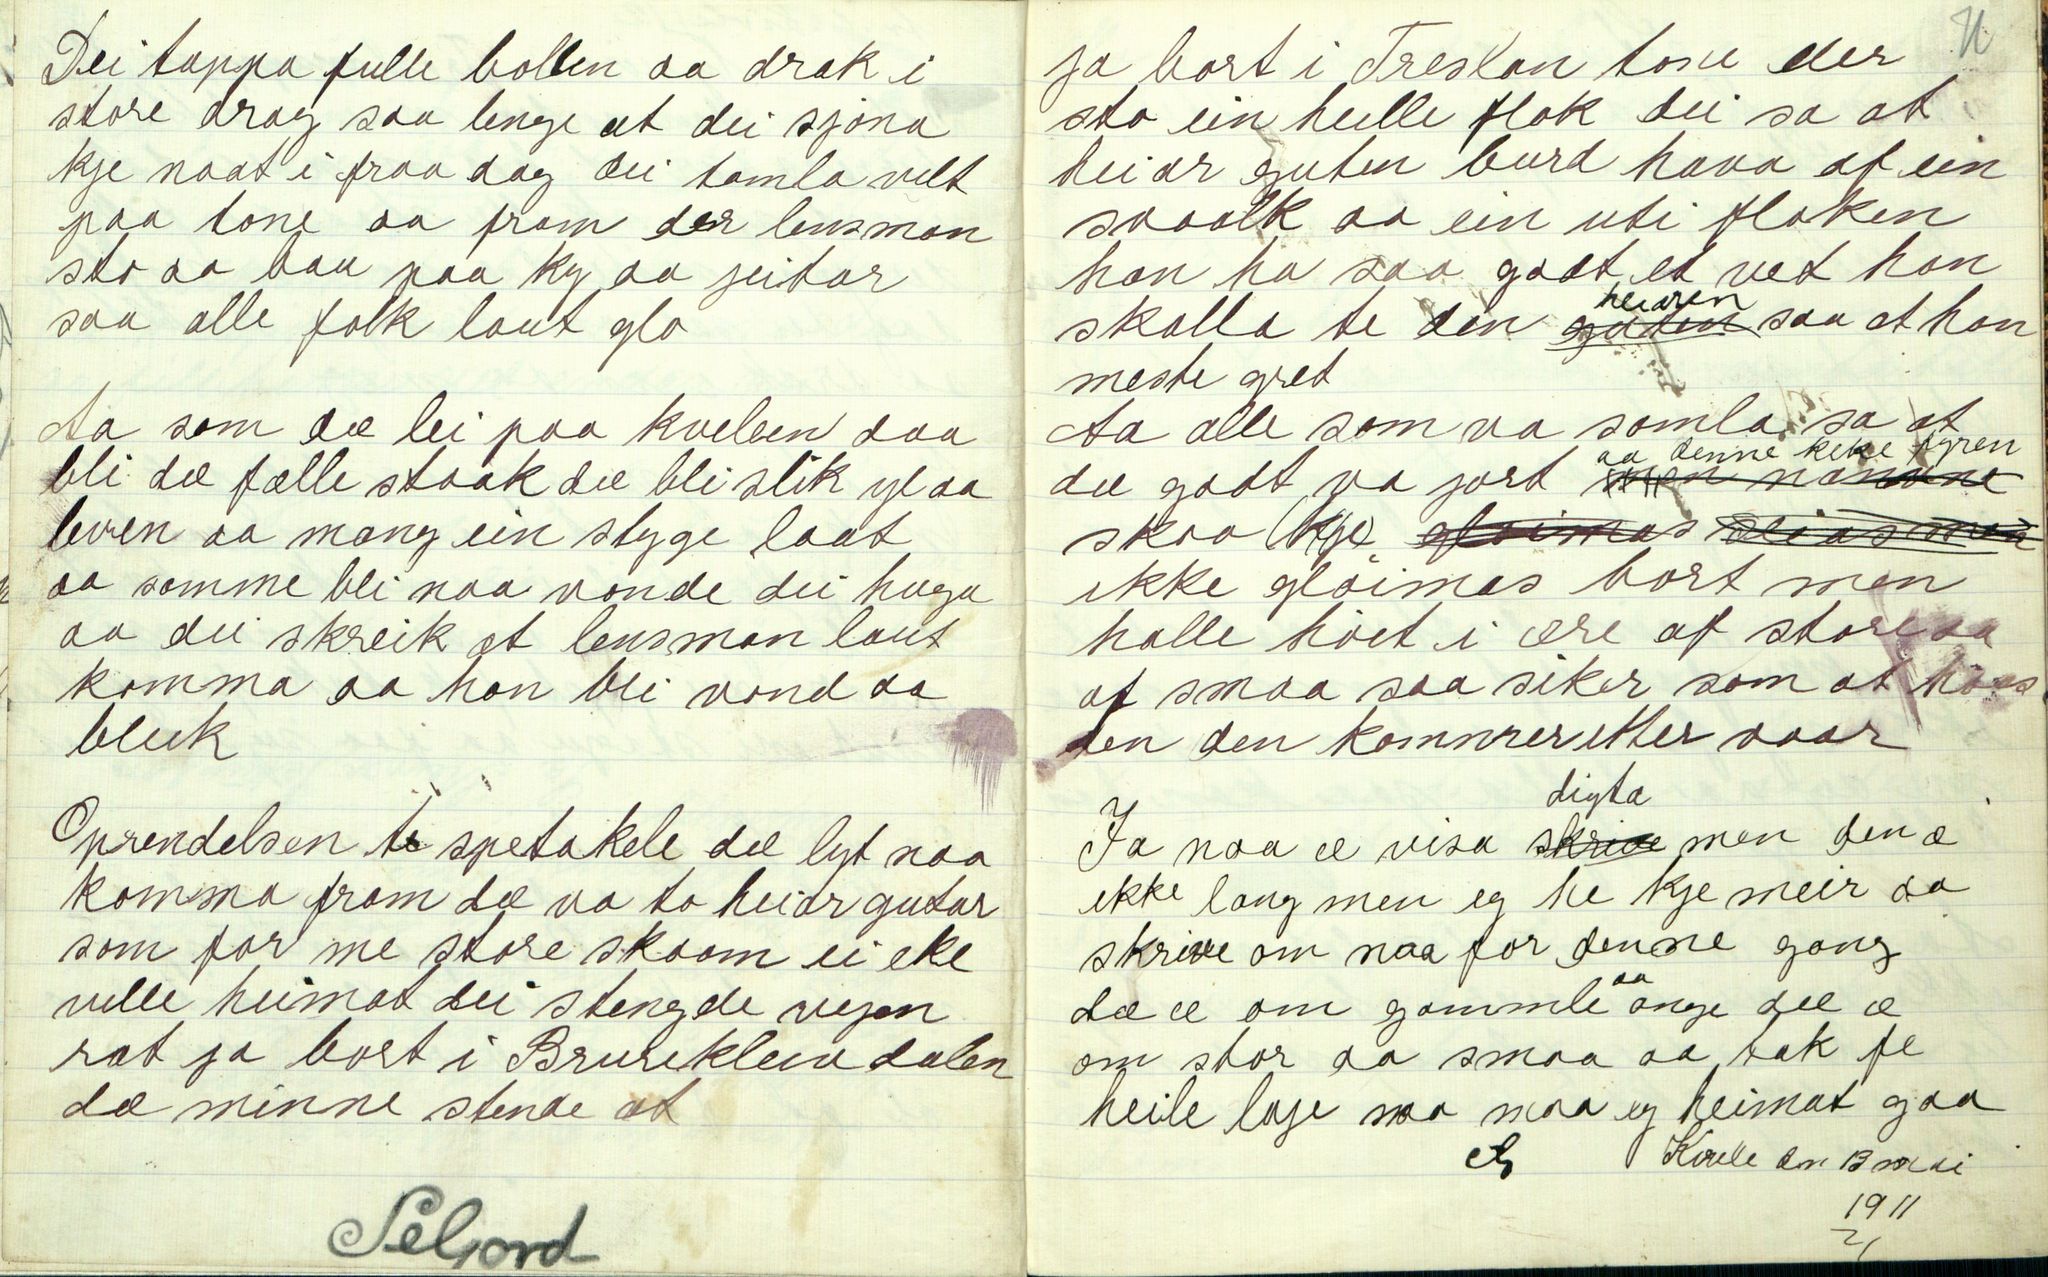 Dei tappa fulle bollen aa drak i
store drag saa lenge at dei sjøna
kje naat i fraa dag dei tamla velt
paa tone aa fram der lensman
sto aa bau paa ky aa jeitar
saa alle folk laut glo
Aa som dæ lei paa kvelden daa
blei dæ fælle staak dæ blei slik yl aa
leven aa mang ein stygge laat
aa somme blei naa vonde dei huga
aa dei skreik at lensman laut
komma aa han blei vond aa
bleik
Oprendelsen te spetakele dæ lyt naa
komma fram dæ va to heiar gutar
som for me store skaam ei eke
velle heimat dei stengde vejen
rat ja bort i Brurekleiv dalen
dæ minne stende at
Seljord
11
ja bort i Treskan tone der
sto ein heille flok dei sa at
heiar guten burd hava af ein
svaalk aa ein uti floken
han ha saa godt et vet han
skalla te den guten heiaren saa at han
meste gret
Aa alle som va samla sa at
dæ godt va jort aa denne keke fyren
skaa kje gløimas
ikke gløimas bort men
halle høit i ære af store aa
af smaa saa siker som at høs
den den kommer etter vaar
digta
Ja naa æ visa skrive men den æ
ikke lang men eg he kje meir aa
skrive om naa for denne gang
dæ æ om gammle aa onge dæ æ
om stor aa smaa aa tak fe
heile laje naa maa eg heimat gaa
Kvelle den 13 mai
1911